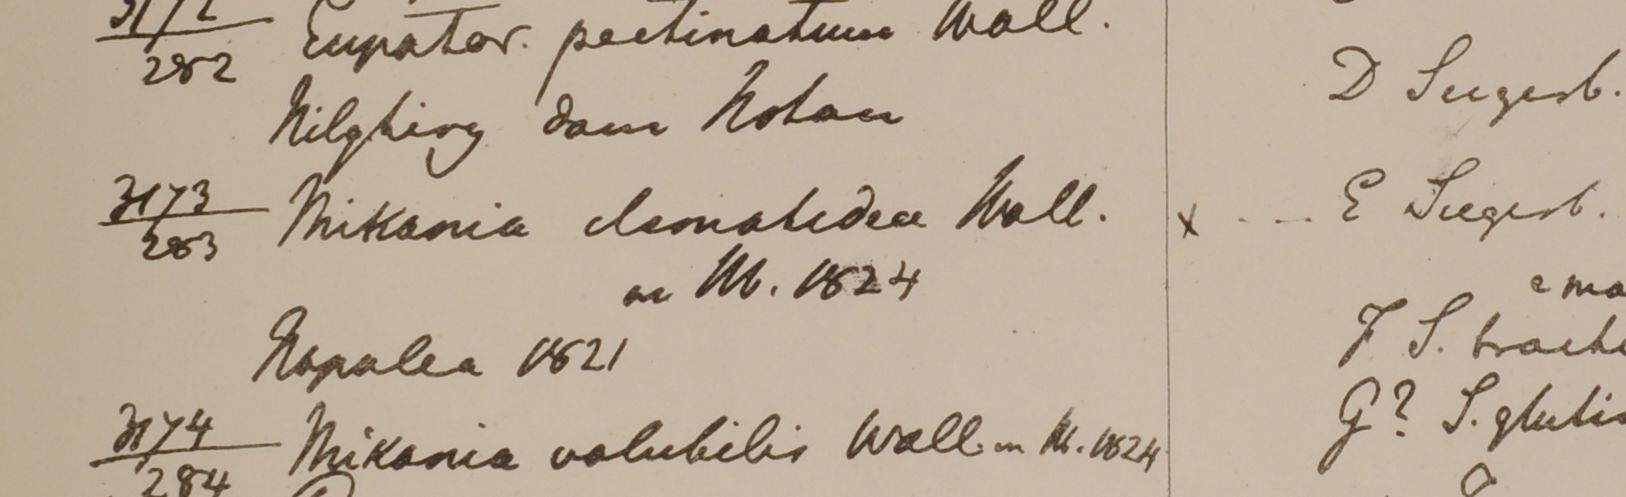 3172
282 Eupator. pectinatum Wall.
Nilghiry dam Notan
3173
283 Mikania clematidea Wall.
in M. 1824
Napalea 1821
3174
284 Mikania volubilis Wall. in M. 1824
D Seegesb.
x - - - E Seegesb.
F S. brache
G? S. glutis